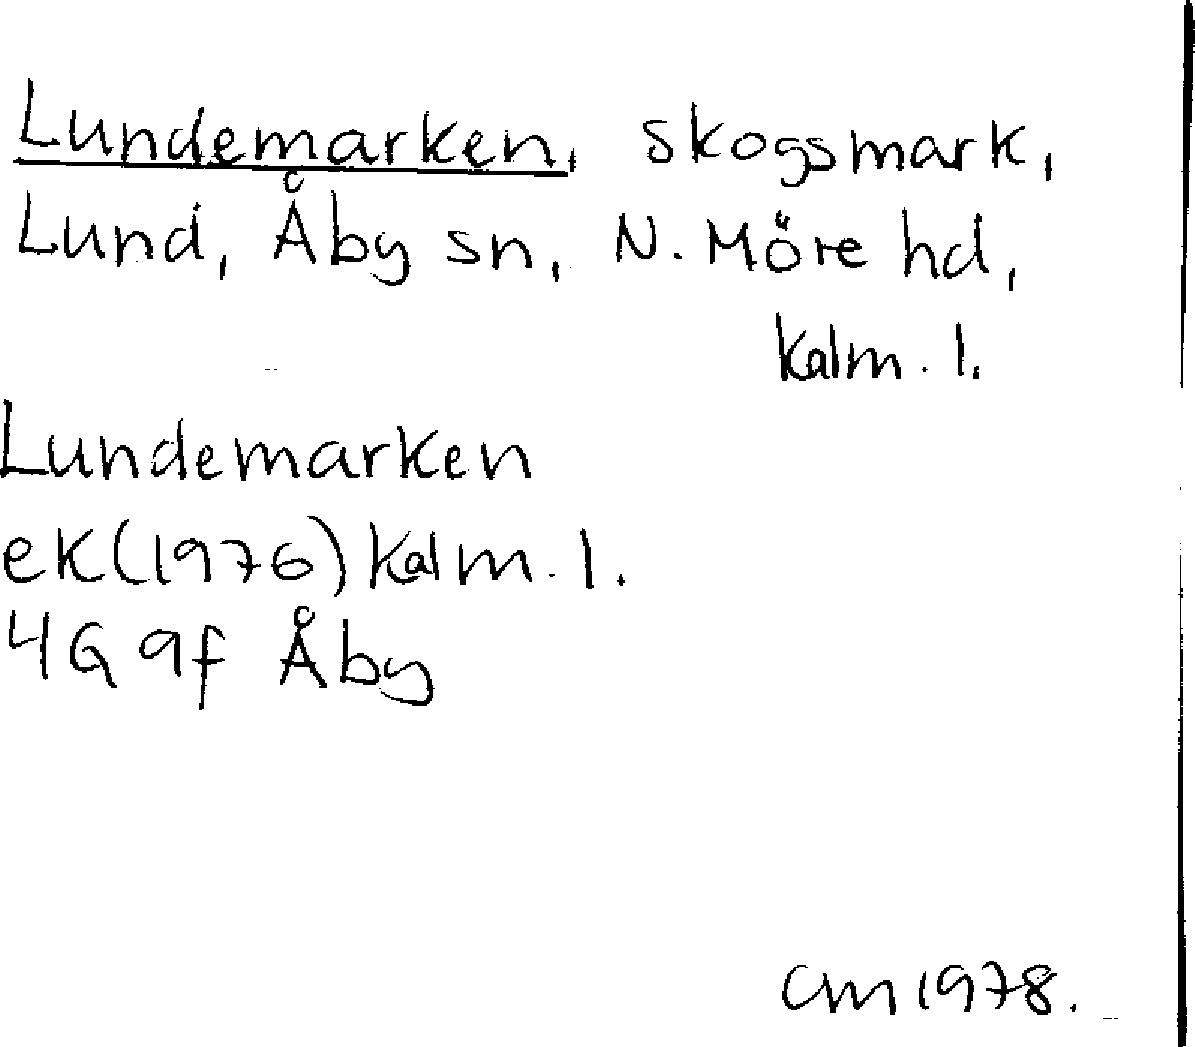 Lundemarken, skogsmark,
Lund, Åby sn, N. Möre hd,
Kalm. l.
Lundemarken
ek(1976) Kalm. l.
4G 9f Åby
CM 1978.